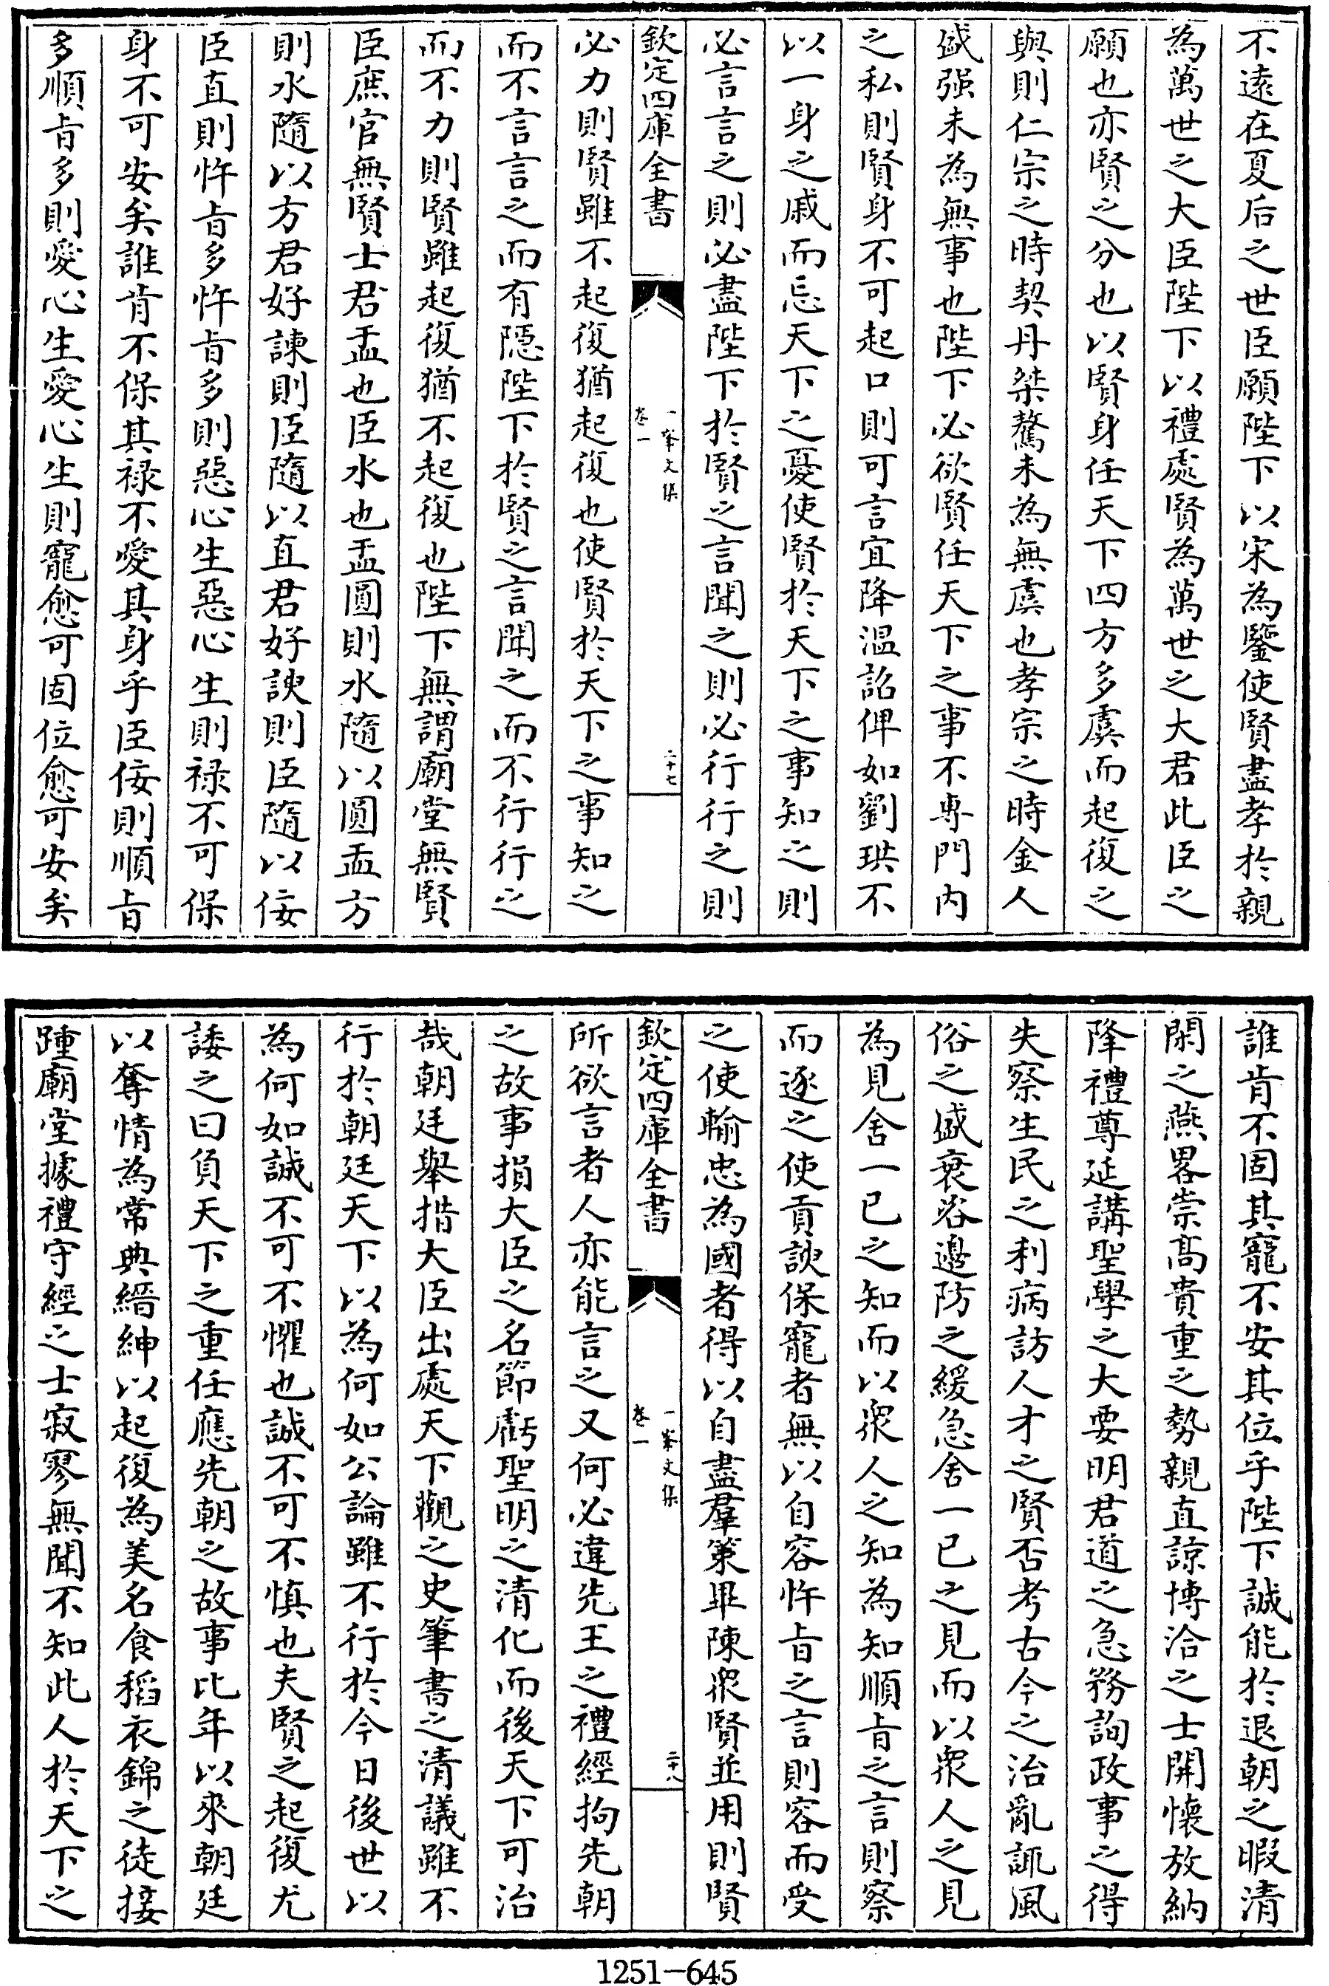 不遠在夏后之世臣願陛下以宋為鑒使賢盡孝於親
為萬世之大臣陛下以禮處賢為萬世之大君此臣之
願也亦賢之分也以賢身任天下四方多虞而起復之
與則仁宗之時契丹桀驁未為無虞也孝宗之時金人
盛强未為無事也陛下必欲賢任天下之事不專門内
之私則賢身不可起口則可言宜降温詔俾如劉珙不
以一身之戚而忘天下之憂使賢於天下之事知之則
必言言之則必盡陛下於賢之言聞之則必行行之則
欽定四庫全書
一峯文集
卷一
二十七
必力則賢雖不起復猶起復也使賢於天下之事知之
而不言言之而有隱陛下於賢之言聞之而不行行之
而不力則賢雖起復猶不起復也陛下無謂廟堂無賢
臣庶官無賢士君盂也臣水也盂圓則水隨以圓盂方
則水隨以方君好諫則臣隨以直君好諛則臣隨以佞
臣直則忤旨多忤旨多則惡心生惡心生則禄不可保
身不可安矣誰肯不保其禄不愛其身乎臣佞則順旨
多順旨多則愛心生愛心生則寵愈可固位愈可安矣
誰肯不固其寵不安其位乎陛下誠能於退朝之暇清
閑之燕畧崇髙貴重之勢親直諒博洽之士開懷放納
降禮尊延講聖學之大要明君道之急務詢政事之得
失察生民之利病訪人才之賢否考古今之治亂諏風
俗之盛衰咨邊防之緩急舍一已之見而以衆人之見
為見舍一已之知而以衆人之知為知順旨之言則察
而逐之使貢諛保寵者無以自容忤旨之言則容而受
之使輸忠為國者得以自盡羣策畢陳衆賢並用則賢
欽定四庫全書
一峯文集
卷一
二十八
所欲言者人亦能言之又何必違先王之禮經拘先朝
之故事損大臣之名節虧聖明之清化而後天下可治
哉朝廷舉措大臣出處天下觀之史筆書之清議雖不
行於朝廷天下以為何如公論雖不行於今日後世以
為何如誠不可不懼也誠不可不慎也夫賢之起復尤
諉之曰負天下之重任應先朝之故事比年以來朝廷
以奪情為常典縉紳以起復為美名食稻衣錦之徒接
踵廟堂據禮守經之士寂寥無聞不知此人於天下之
1251—645